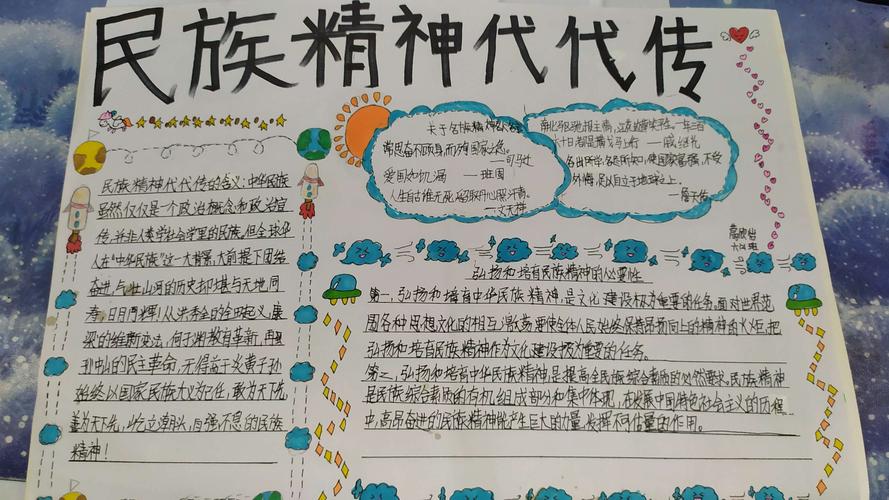 民族精神代代传
民族精神代代传的含义:中华民族
虽然仅仅是一个政治概念和政治宣
传,并非人类学社会学里的民族。但全球华
人在"中华民族"这一大背景,大前提下团结
奋进,与壮山河的历史却堪与天地同
寿,日月同辉!从洪秀全的金田起义,康
梁的维新变法,何子渊教育革新,再到
孙中山的民主革命,无得益于炎黄子孙
始终以国家民族大义为己任,敢为天下先,
善为天下先,屹立潮头,自强不息的民族
精神!
关于名族精神的名言
常思奋不顾身,而殉国家之急。
——司马迁
爱国如饥渴 ——班固
人生自古谁无死,留取丹心照汗青。
——文天祥
南北驱驰报主情,江花边草笑平生。一年三百
六十日,都是横戈马上行 ——戚继光
各出所学,各尽所知,使国家富强,不受
外侮,足以自立于地球之上。
——詹天佑
弘扬和培育民族精神的必要性
第一,弘扬和培育中华民族精神,是文化建设极为重要的任务。面对世界范
围各种思想文化的相互激荡,要使全体人民始终保持昂扬向上的精神的火炬,把
弘扬和培育民族精神作为文化建设极为重要的任务。
第二,弘扬和培育中华民族精神,是提高全民族综合素质的必然要求。民族精神
是民族综合素质的有机组成部分和集中体现,在发展中国特色社会主义的历程
中,高昂奋进的民族精神能产生巨大的力量,发挥不可估量的作用。